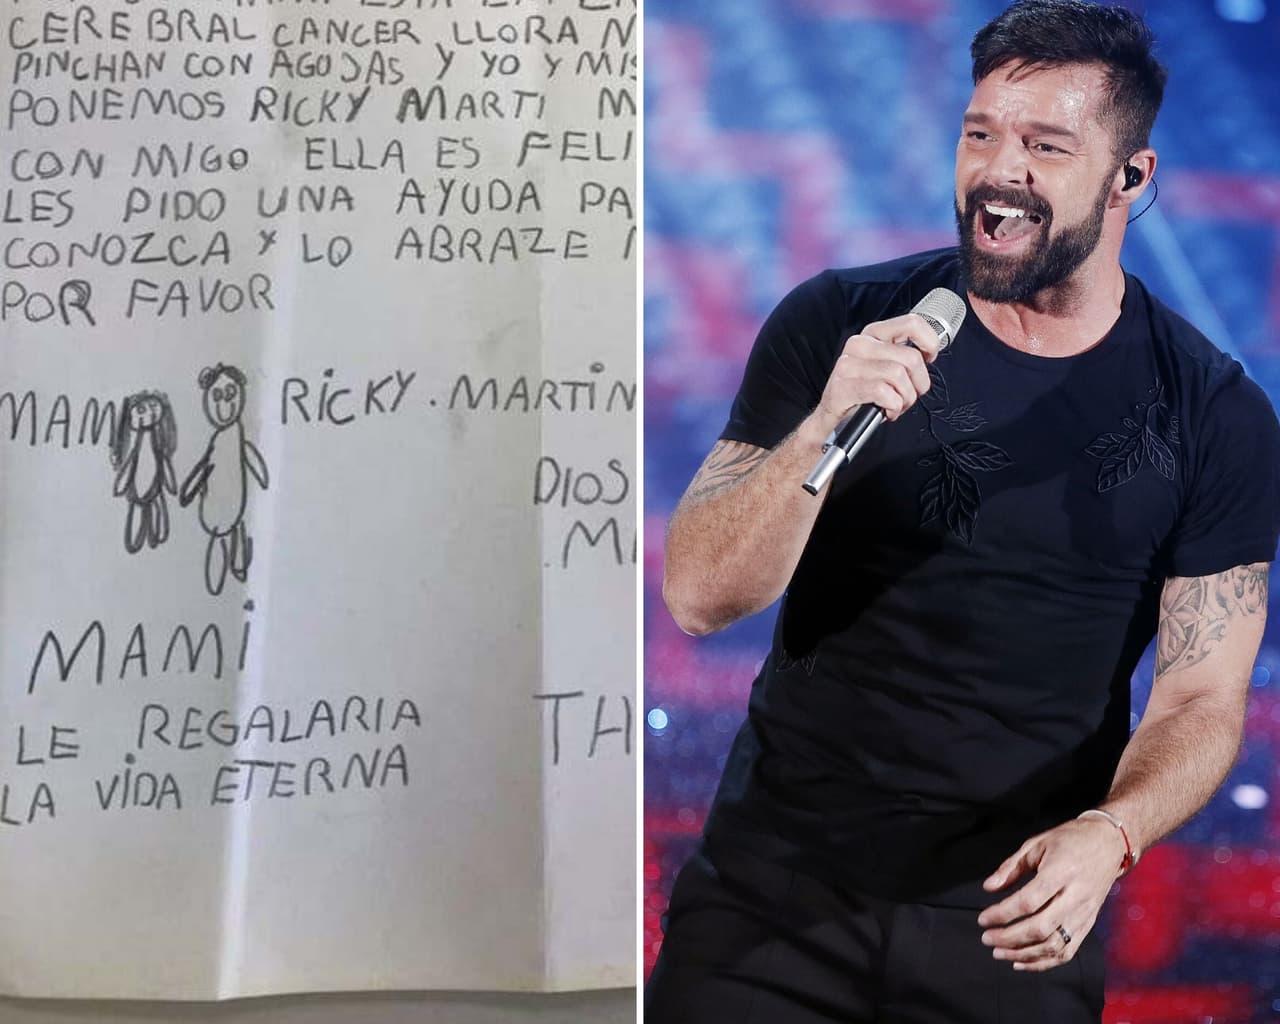 CEREBRAL CANCER LLORA
PINCHAN CON AGUJAS Y YO Y MIS
PONEMOS RICKY MARTI M
CON MIGO ELLA ES FELI
LES PIDO UNA AYUDA PA
CONOZCA Y LO ABRAZE
POR FAVOR
MAMI RICKY . MARTIN
DIOS
.M
MAMI
LE REGALARIA TH
LA VIDA ETERNA